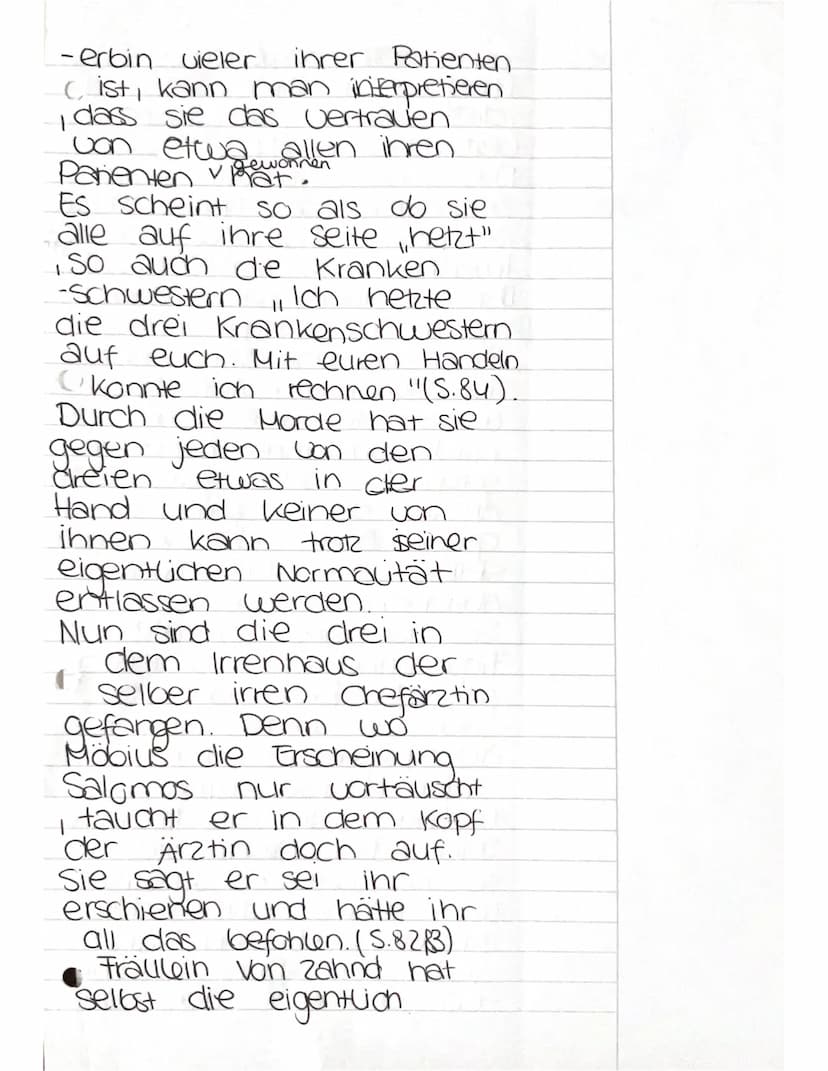 -erbin vieler ihrer Patienten
ist, kann man interpretieren
, dass sie das vertrauen
von etwa allen ihren
Patienten gewonnen hat.
Es scheint so als ob sie
alle auf ihre Seite „hetzt"
, so auch die Kranken
-schwestern „Ich hetzte
die drei Krankenschwestern
auf euch. Mit euren Handeln
konnte ich rechnen "(S.84).
Durch die Morde hat sie
gegen jeden von den
dreien etwas in der
Hand und keiner von
ihnen kann trotz seiner
eigentlichen Normalität
entlassen werden.
Nun sind die drei in
dem Irrenhaus der
selber irren Chefärztin
gefangen. Denn wo
Möbius die Erscheinung
Salomos nur vortäuscht
, taucht er in dem Kopf
der Ärztin doch auf.
Sie sagt er sei ihr
erschienen und hätte ihr
all das befohlen. (S.82/83)
Fräulein von Zahnd hat
selbst die eigentlich